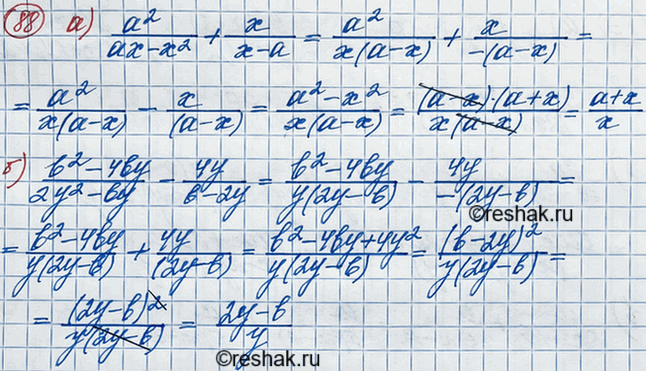 88 а) a²/(ax-x²) + x/(x-a) = a²/(x(a-x)) + x/(-(a-x)) =
= a²/(x(a-x)) - x/(a-x) = (a²-x²)/(x(a-x)) = ((a-x)·(a+x))/(x(a-x)) = (a+x)/x
б) (b²-4by)/(2y²-by) - 4y/(b-2y) = (b²-4by)/(y(2y-b)) - 4y/(-(2y-b)) =
©reshak.ru
= (b²-4by)/(y(2y-b)) + 4y/(2y-b) = (b²-4by+4y²)/(y(2y-b)) = (b-2y)²/(y(2y-b)) =
= (2y-b)²/(y(2y-b)) = (2y-b)/y
©reshak.ru